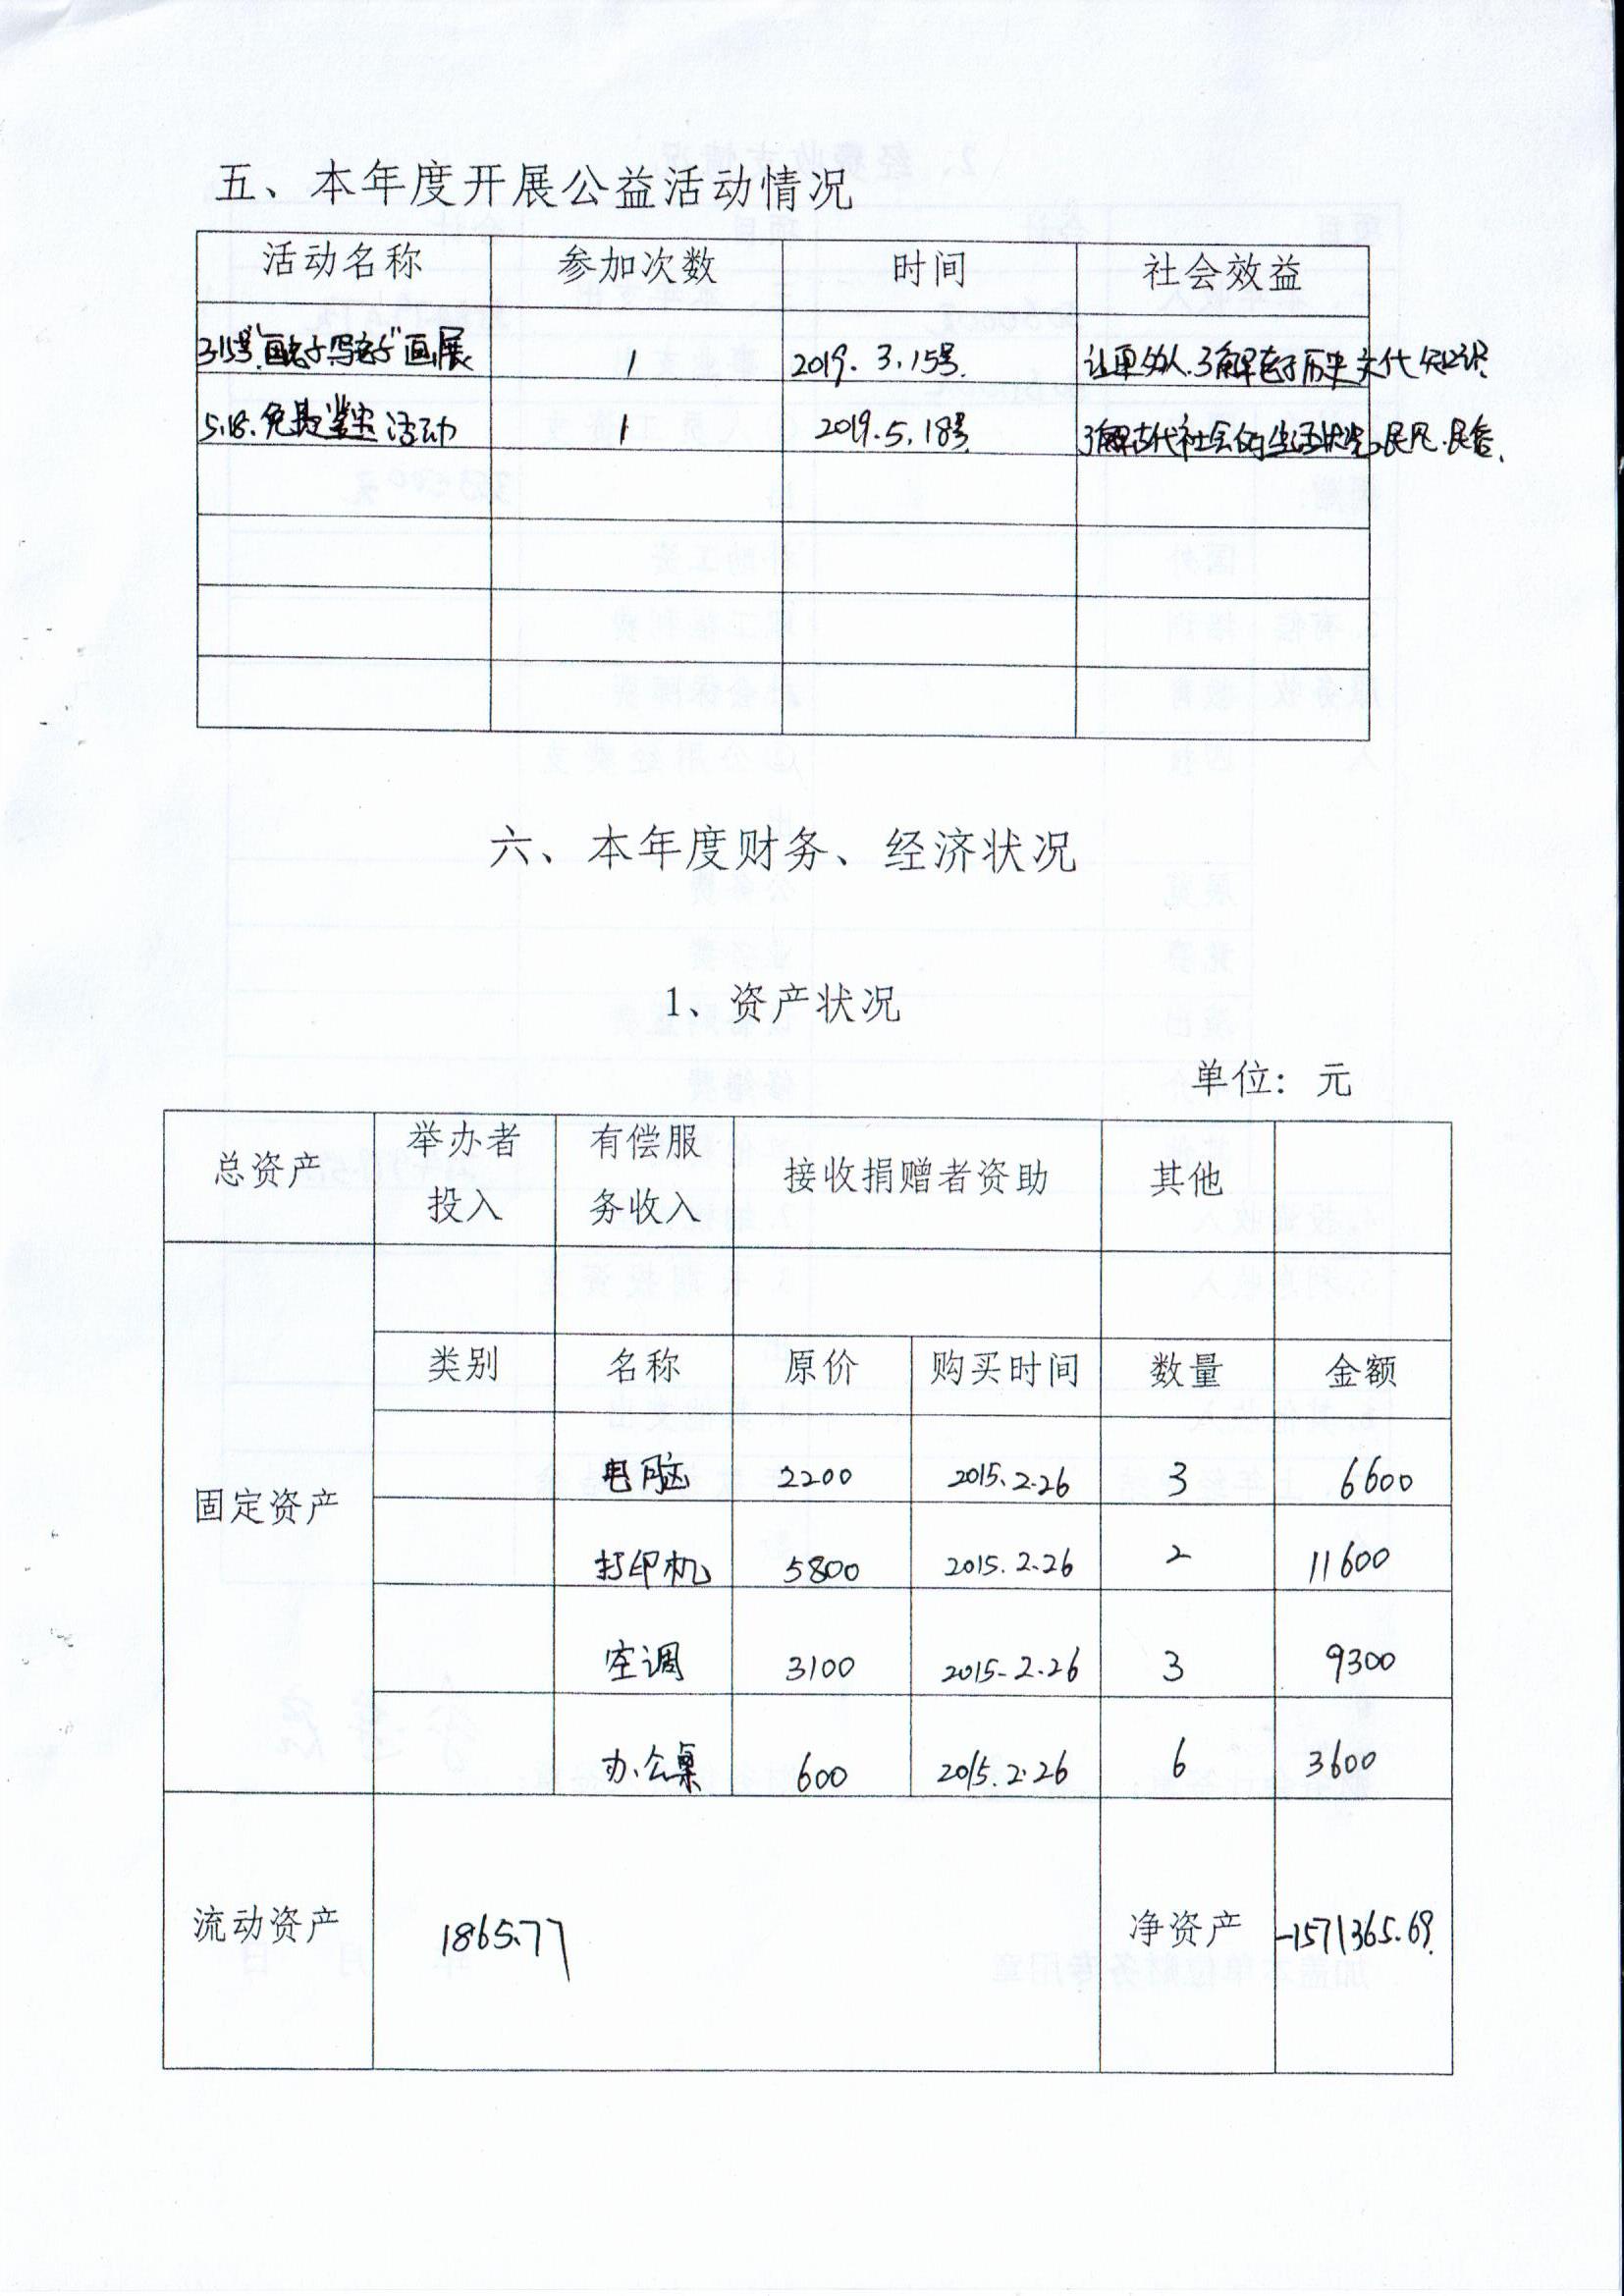 五、本年度开展公益活动情况
活动名称 参加次数 时间 社会效益
315号"画老子写老子"画展 1 2019.3.15号. 让更多的人了解老子历史文化知识
5.18.免费鉴宝活动 1 2019.5.18号 了解古代社会的生活状况民风.民俗.
六、本年度财务、经济状况
1、资产状况
单位：元
总资产 举办者投入 有偿服务收入 接收捐赠者资助 其他
固定资产 类别 名称 原价 购买时间 数量 金额
电脑 2200 2015.2.26 3 6600
打印机 5800 2015.2.26 2 11600
空调 3100 2015.2.26 3 9300
办公桌 600 2015.2.26 6 3600
流动资产 1865.77 净资产 -1571365.69.